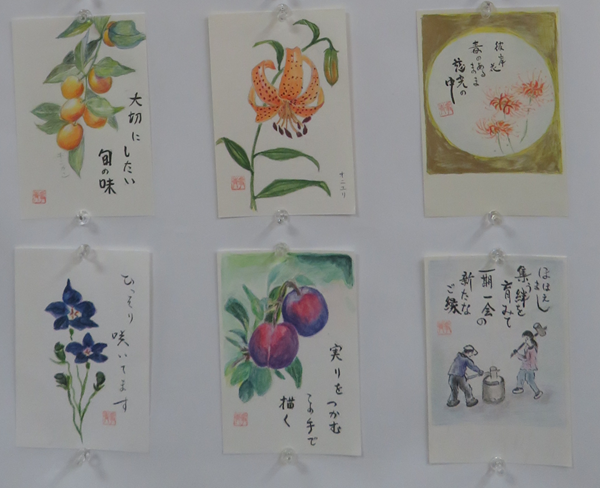 大切にしたい
旬の味
オニユリ
彼岸花
毒のある
まま
慈光の
中
ひっそり
咲いてます
実りをつかむ
この手で
描く
ほほえし
集う絆を
育みて
一期一会の
新たな
ご縁